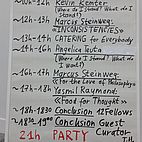 ~10h-12h Kevin Kemter
(Where do I Stand? What do I Stand?)
~12h-13h Marcus Steinweg:
«INCONSISTENCIES»
~13h-14h CATERING for Everybody
~14h-16h Angelica Teuta
(Where do I Stand? What do I Want?)
~16h-17h Marcus Steinweg:
«For the Love of Philosophy»
~17h-18h Yasmil Raymond:
«Food for Thought»
~18h-18h30 Conclusion 12 Fellows
~18h30-19h00 Conclusion Guest
Curator
21h PARTY T.H.